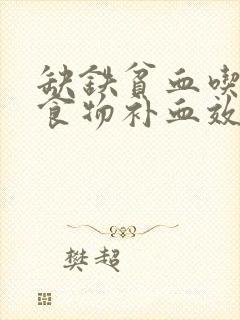 缺铁贫血喫
食物补血效
樊超